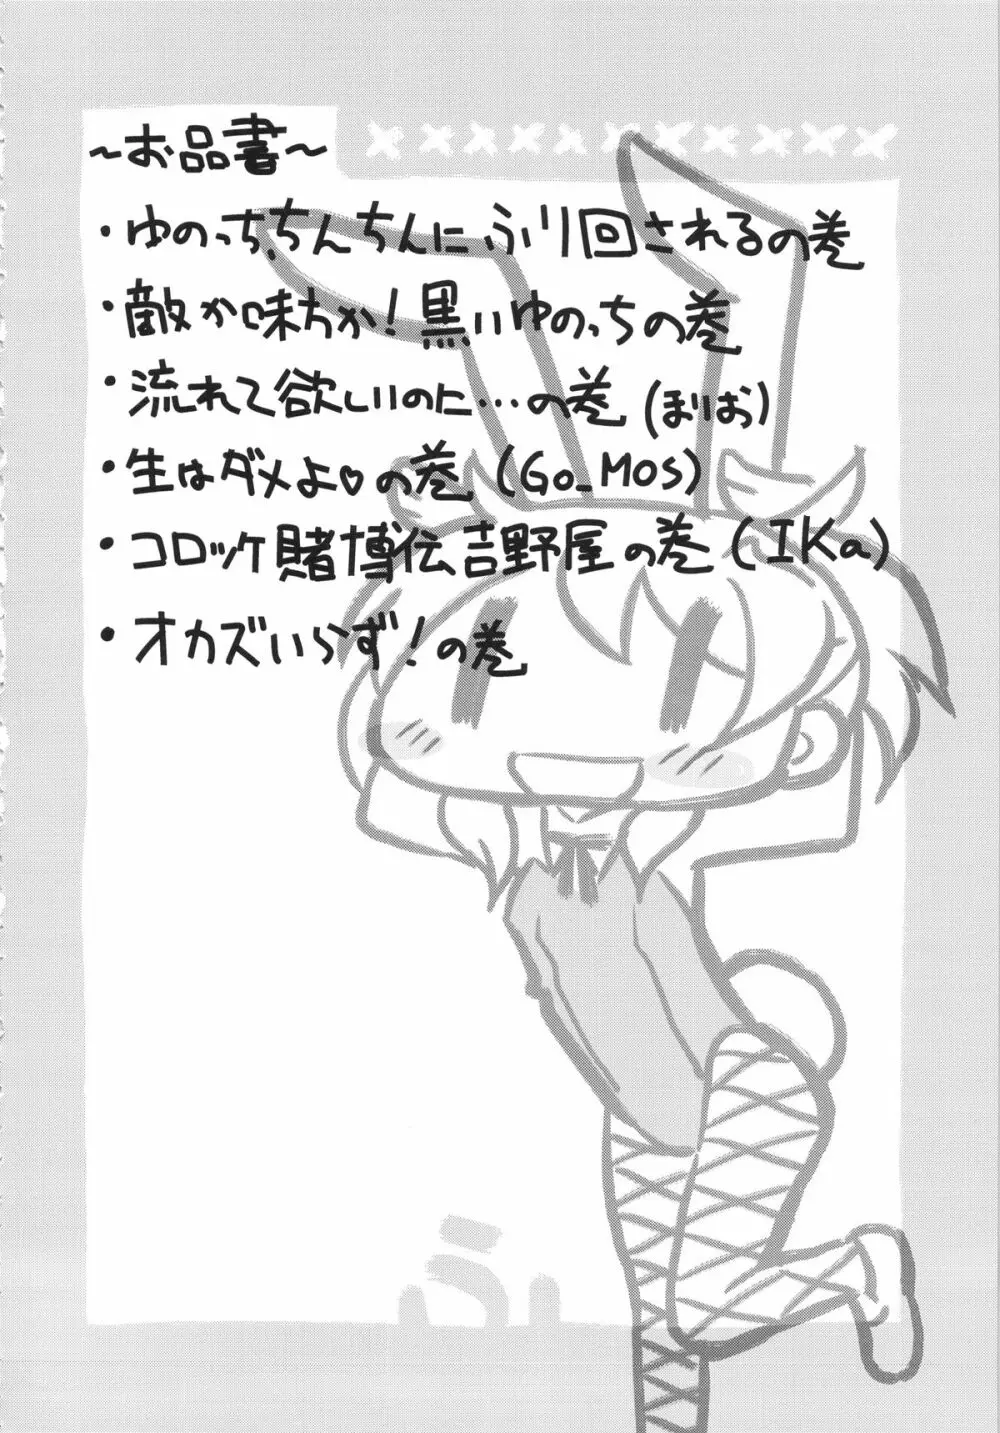 ～お品書～
・ゆのっち、ちんちんにふり回されるの巻
・敵か味方か！黒いゆのっちの巻
・流れて欲しいのに…の巻（まりお）
・生はダメよ♡の巻（Go_MOS）
・コロッケ賭博伝吉野屋の巻（IKa）
・オカズいらず！の巻
ぷ